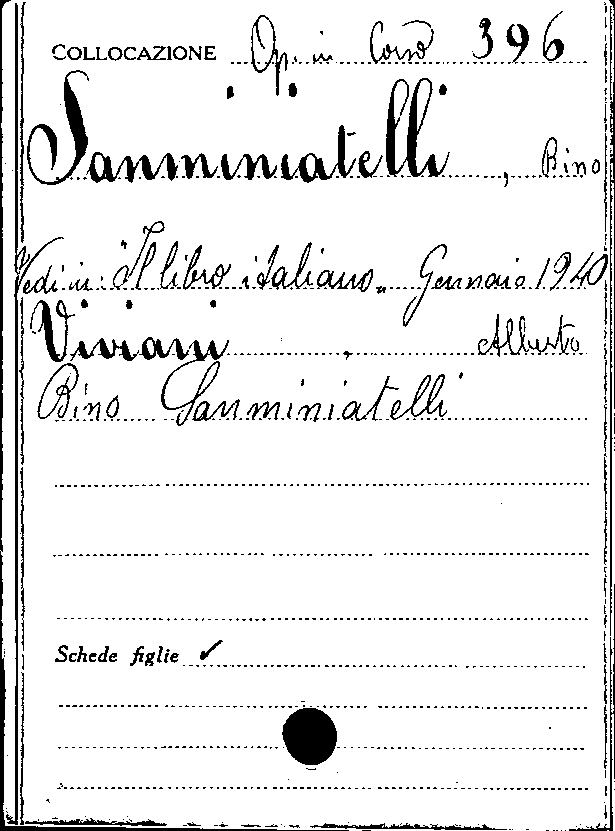 COLLOCAZIONE Op. in Corso 396
Sanminiatelli, Bino
Vedi in: "Il libro italiano„ Gennaio 1940
Viviani, Alberto
Bino Sanminiatelli
Schede figlie ✓